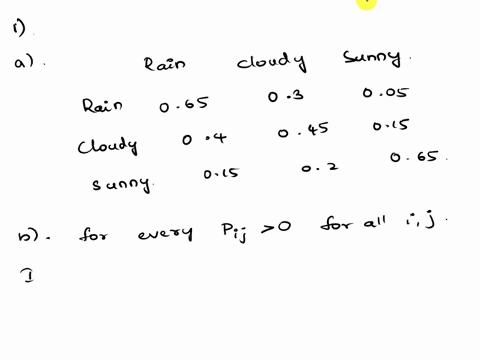 1)
a). Rain cloudy Sunny.
Rain 0.65 0.3 0.05
Cloudy 0.4 0.45 0.15
Sunny. 0.15 0.2 0.65.
b). for every Pij >0 for all i,j.
I